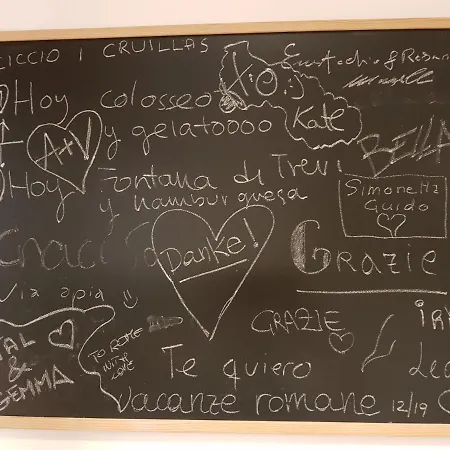 CICCIO I CRUILLAS
Hoy colosseo
y gelatoooo
A+V
Kate
BELLA
Hoy Fontana di Trevi
y hamburguesa
Simonetta
Guido
Danke!
Grazie
Via apia
GRAZIE
TO ROME
WITH
LOVE
VAL
&
GEMMA
Te quiero
vacanze romane 12/19